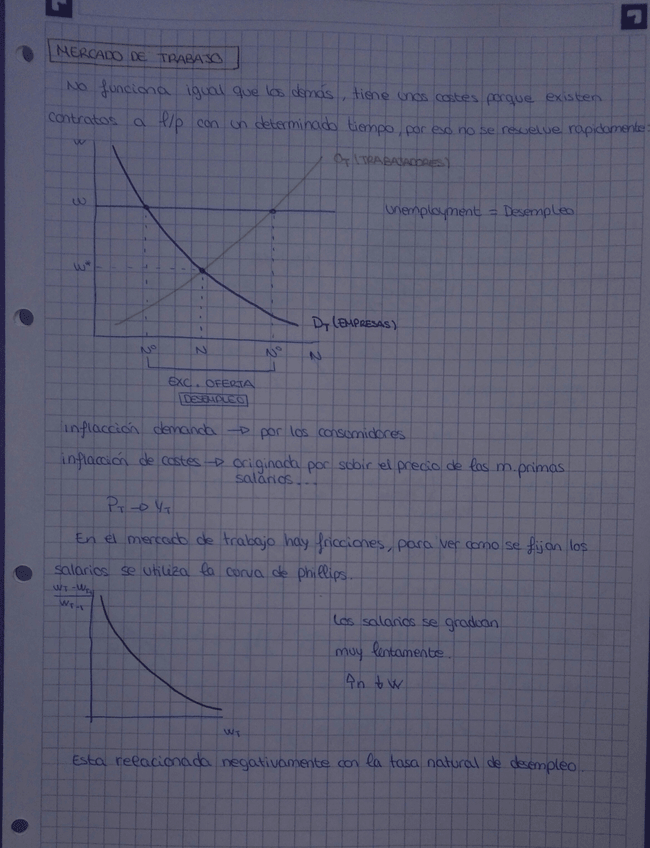 MERCADO DE TRABAJO
No funciona igual que los demás, tiene unos costes porque existen
contratos a l/p con un determinado tiempo, por eso no se resuelve rapidamente
W
OT (TRABAJADORES)
W
unemployment = Desempleo
W*
DT (EMPRESAS)
Nº N Nº N
EXC. OFERTA
DESEMPLEO
inflacción demanda → por los consumidores
inflacción de costes → originada por subir el precio de las m. primas
salários...
PT → YT
En el mercado de trabajo hay fricciones, para ver como se fijan los
salarios se utiliza la curva de phillips.
WT - WT-1
WT-1
Los salarios se gradúan
muy lentamente.
WT
Esta relacionada negativamente con la tasa natural de desempleo.